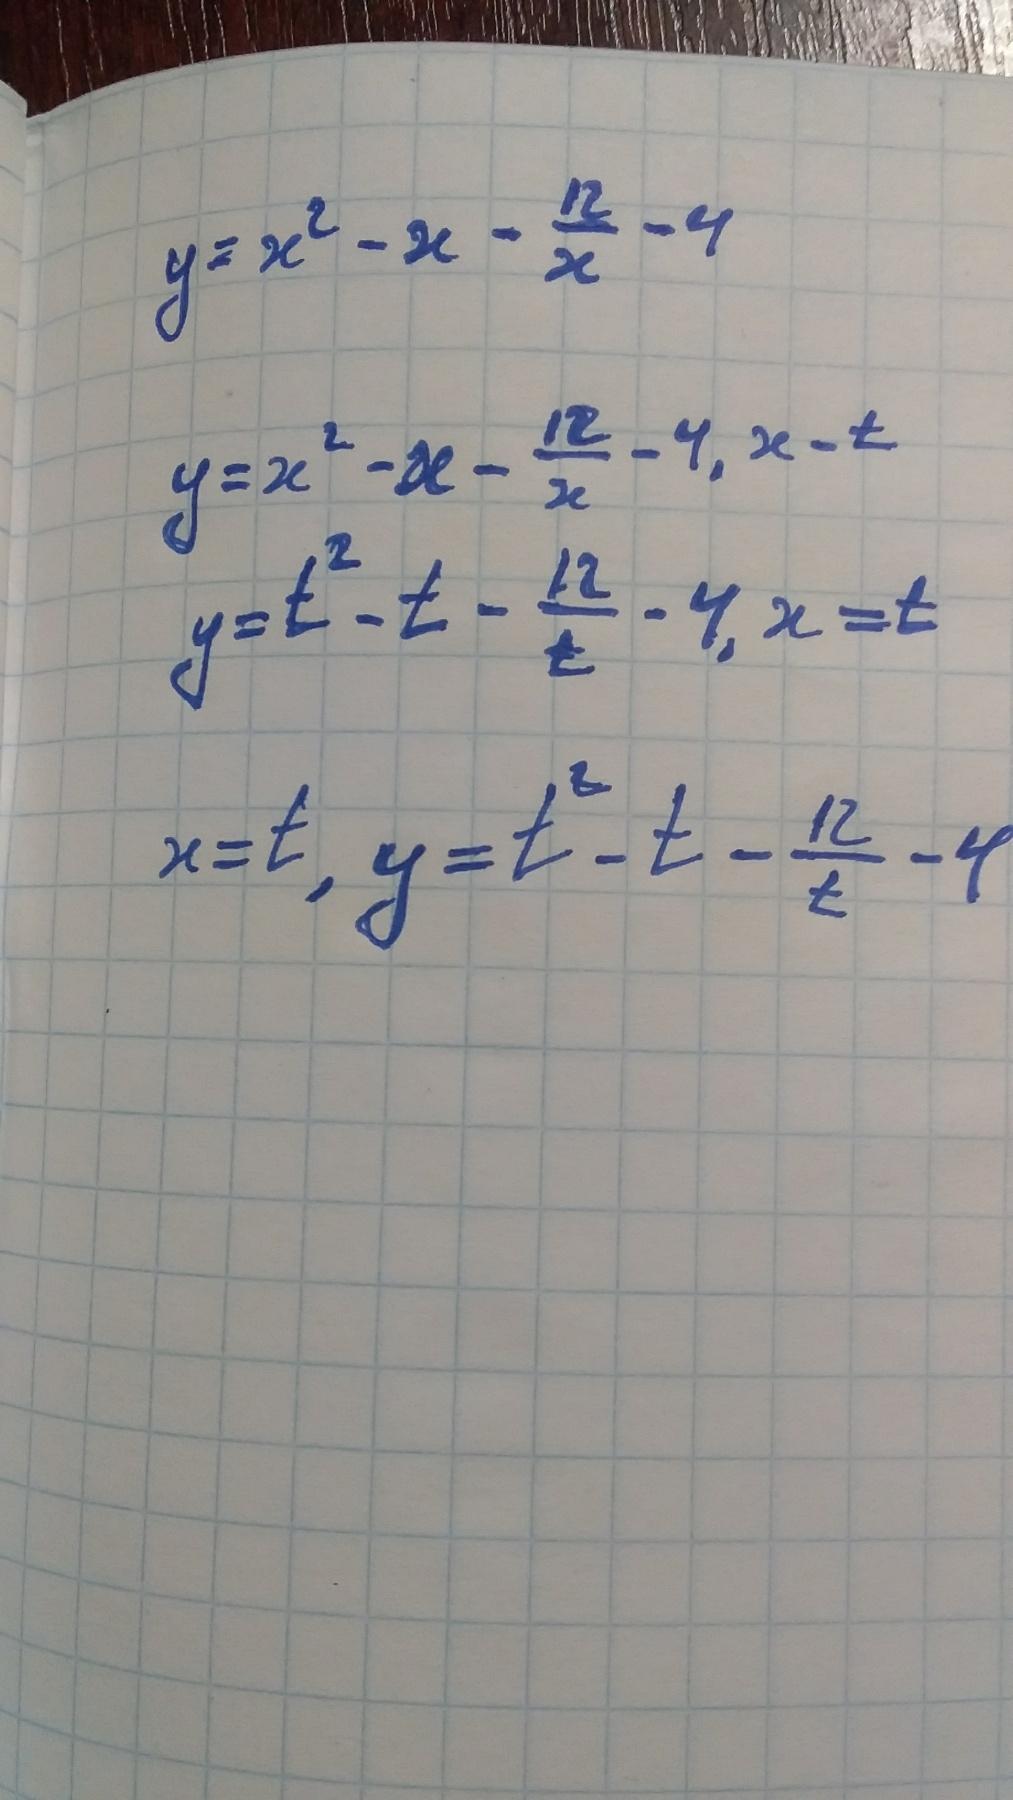 y = x² - x - 12/x - 4
y = x² - x - 12/x - 4, x - t
y = t² - t - 12/t - 4, x = t
x = t, y = t² - t - 12/t - 4